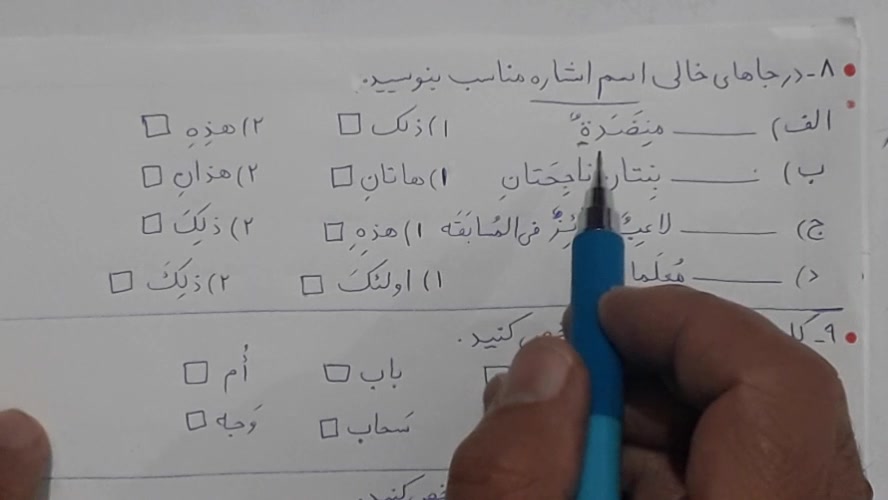 ۸- در جاهای خالی اسم اشاره مناسب بنویسید.
الف) ____ مِنضَدَةٌ ۱) ذلک □ ۲) هذِهِ □
ب) ____ بِنتانِ ناجِحَتانِ ۱) هاتانِ □ ۲) هذانِ □
ج) ____ لاعِبٌ فی المُسابَقَه ۱) هذِهِ □ ۲) ذلِکَ □
د) ____ ۱) اولئکَ □ ۲) ذلِکَ □
۹- کنید.
باب □ أُم □
سَحاب □ وَجه □
کنید.